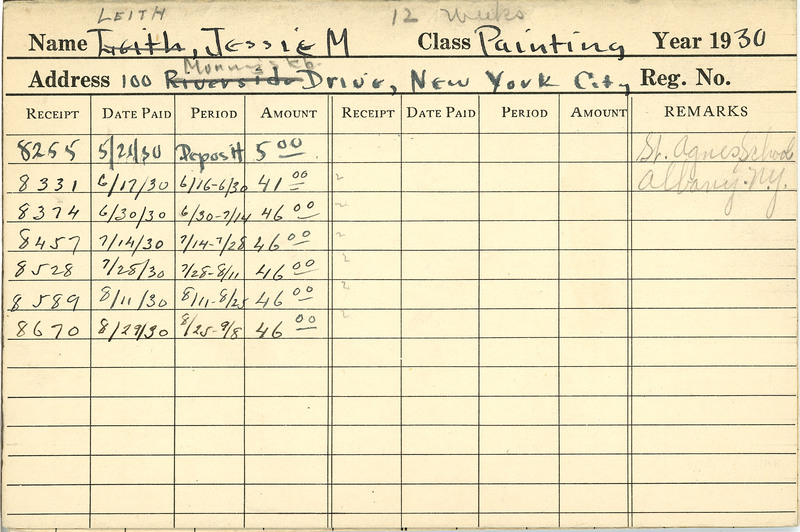 LEITH 12 weeks
Name Leith, Jessie M Class Painting Year 1930
Morningside
Address 100 Riverside Drive, New York City Reg. No.
RECEIPT DATE PAID PERIOD AMOUNT RECEIPT DATE PAID PERIOD AMOUNT REMARKS
8255 5/21/30 Deposit 5 00 St. Agnes School
8331 6/17/30 6/16-6/30 41 00 2 Albany. N.Y.
8374 6/30/30 6/30-7/14 46 00 2
8457 7/14/30 7/14-7/28 46 00 2
8528 7/28/30 7/28-8/11 46 00 2
8589 8/11/30 8/11-8/25 46 00 2
8670 8/29/30 8/25-9/8 46 00 2